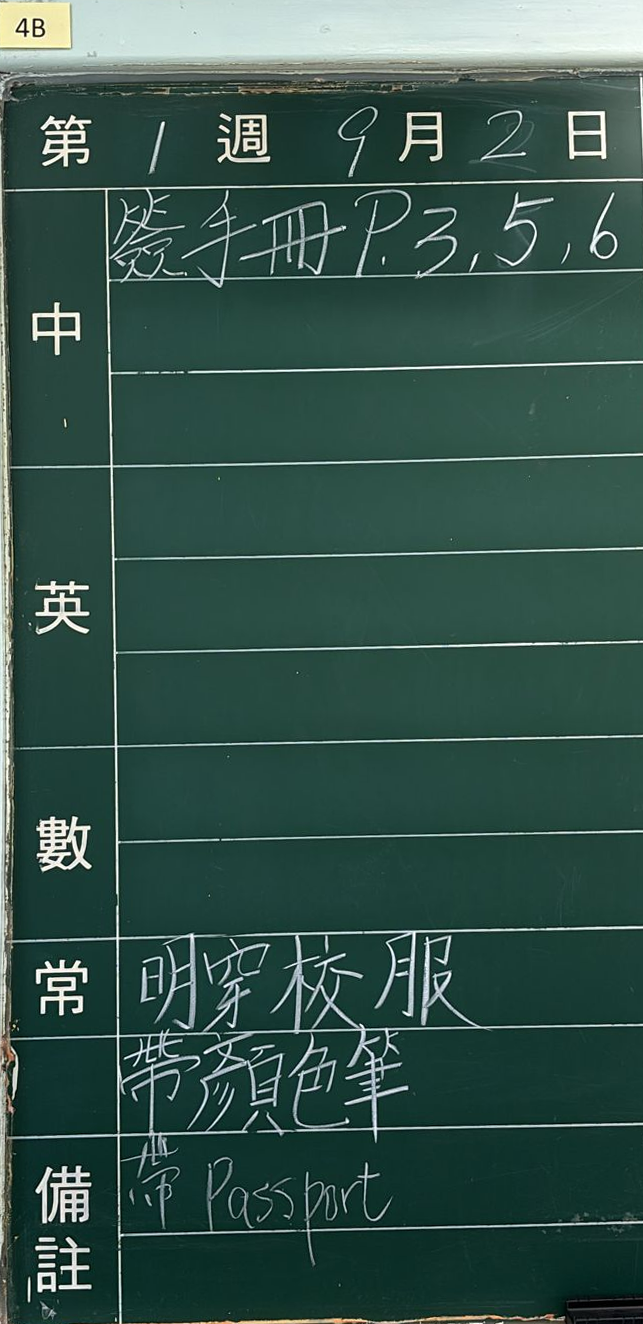 4B
第 1 週 9 月 2 日
中
簽手冊 P.3, 5, 6
英
數
常
明穿校服
帶顏色筆
備註
帶 Passport